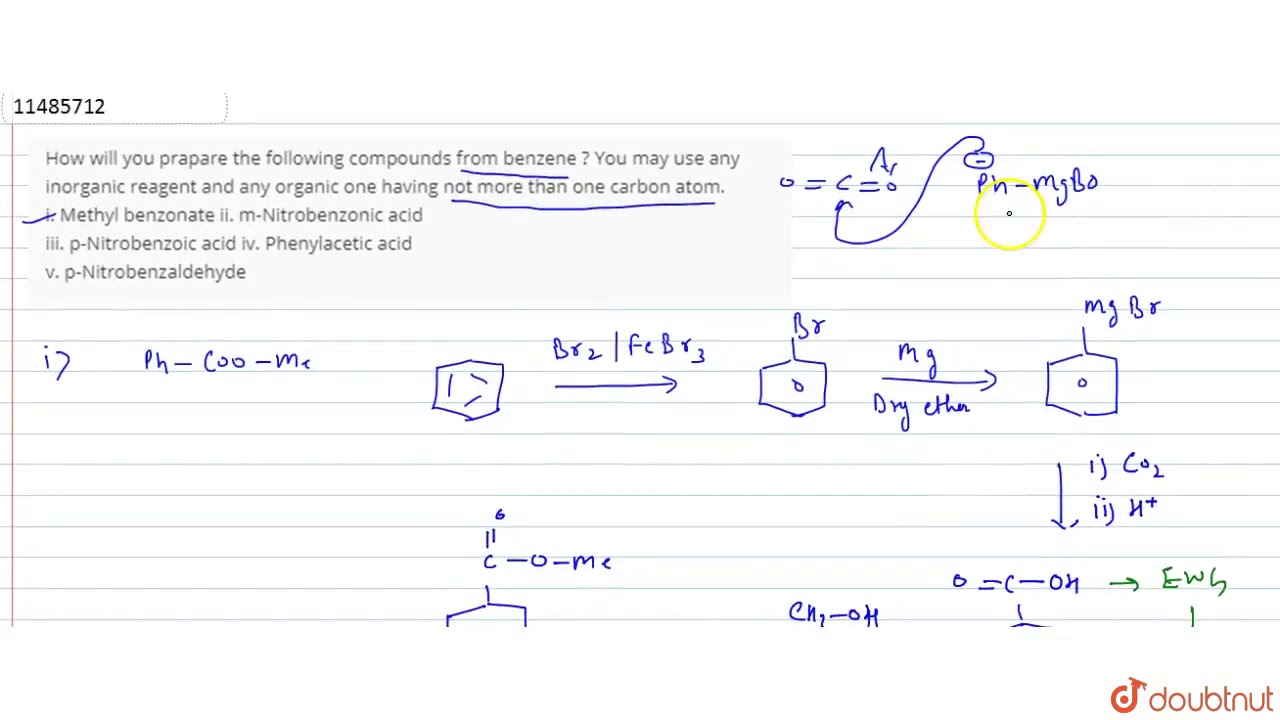 11485712
How will you prapare the following compounds from benzene ? You may use any
inorganic reagent and any organic one having not more than one carbon atom.
i. Methyl benzonate ii. m-Nitrobenzonic acid
iii. p-Nitrobenzoic acid iv. Phenylacetic acid
v. p-Nitrobenzaldehyde
O = C = O
Ph - MgBr
i) Ph - COO - Me
Br2 | FeBr3
Br
Mg
Dry ether
Mg Br
i) CO2
ii) H+
O
C - O - Me
CH3 - OH
O = C - OH → EWG
doubtnut